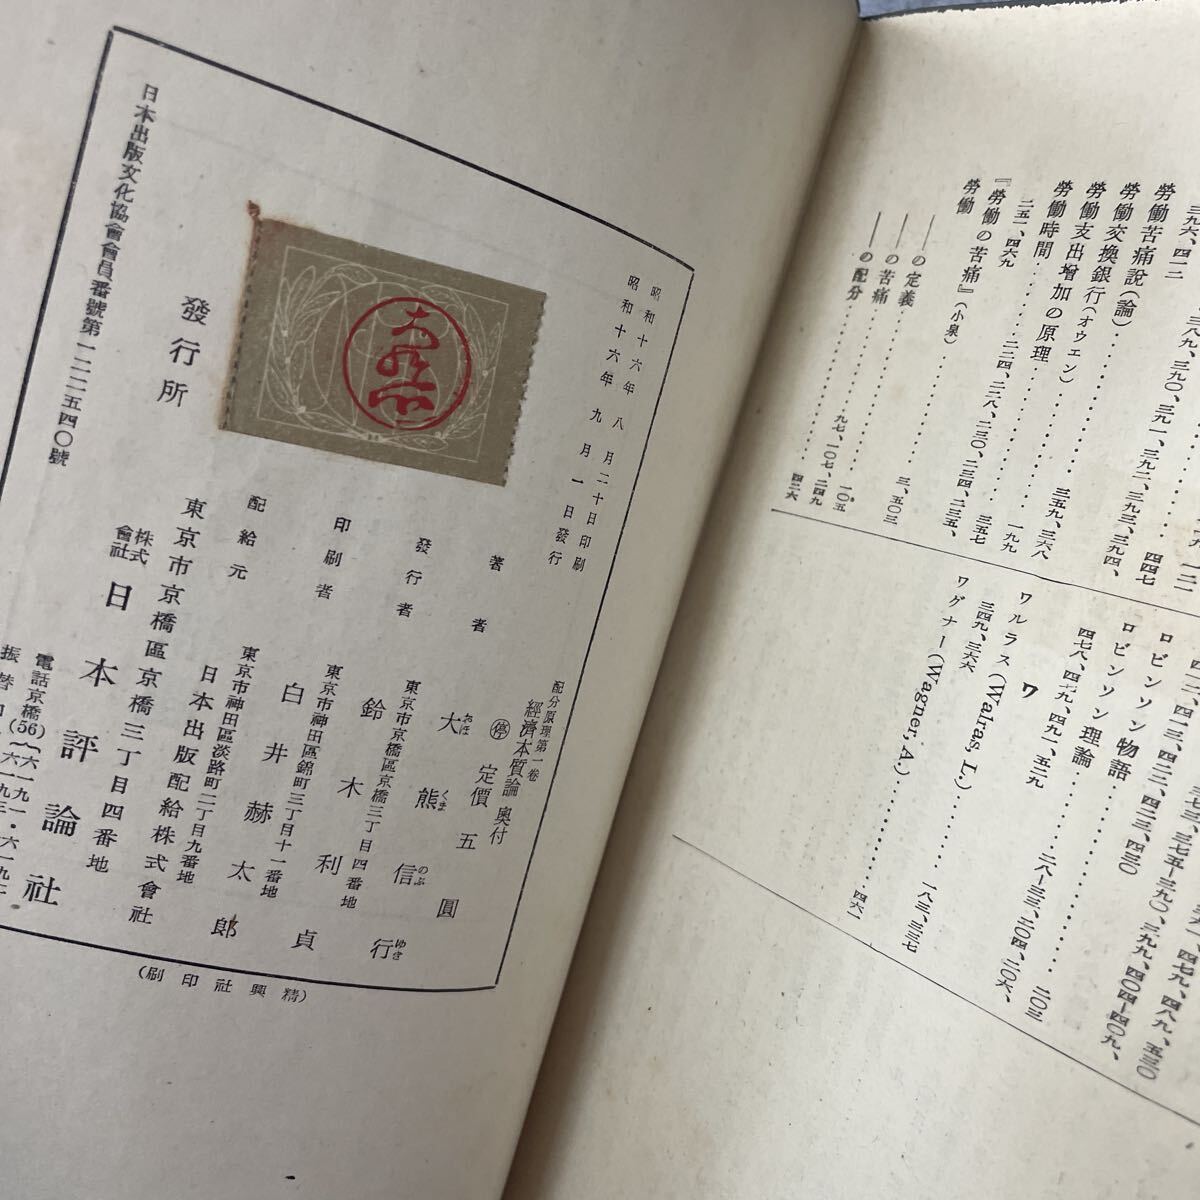 三九六、四一二
勞働苦痛說(論)
勞働交換銀行(オウエン)
四四七
勞働支出增加の原理
三五九、三六八
勞働時間
一九九
二五一、四六九
『勞働の苦痛』(小泉)
三五七
勞働
二二四、二二八、二三〇、二三四、二三五、
——の定義
三、五〇三
——の苦痛
一〇五
——の配分
九七、一〇七、二四九
四二六
ロビンソン物語
ロビンソン理論
二〇三
四七八、四七九、四九一、五二九
ワ
ワルラス(Walras. L.)
三四九、三六六
ワグナー(Wagner, A.)
一八三、三三七
四六一
昭和十六年八月二十日印刷
昭和十六年九月一日發行
配分原理第一卷
經濟本質論 奧付
停 定價五圓
著者 大熊信行
おほ くま のぶ ゆき
發行者
東京市京橋區京橋三丁目四番地
鈴木利貞
印刷者
東京市神田區錦町三丁目十一番地
白井赫太郎
配給元
東京市神田區淡路町二丁目九番地
日本出版配給株式會社
發行所
東京市京橋區京橋三丁目四番地
株式會社 日本評論社
電話京橋(56)
振替口
日本出版文化協會會員番號第一二二五四〇號
(精興社印刷)